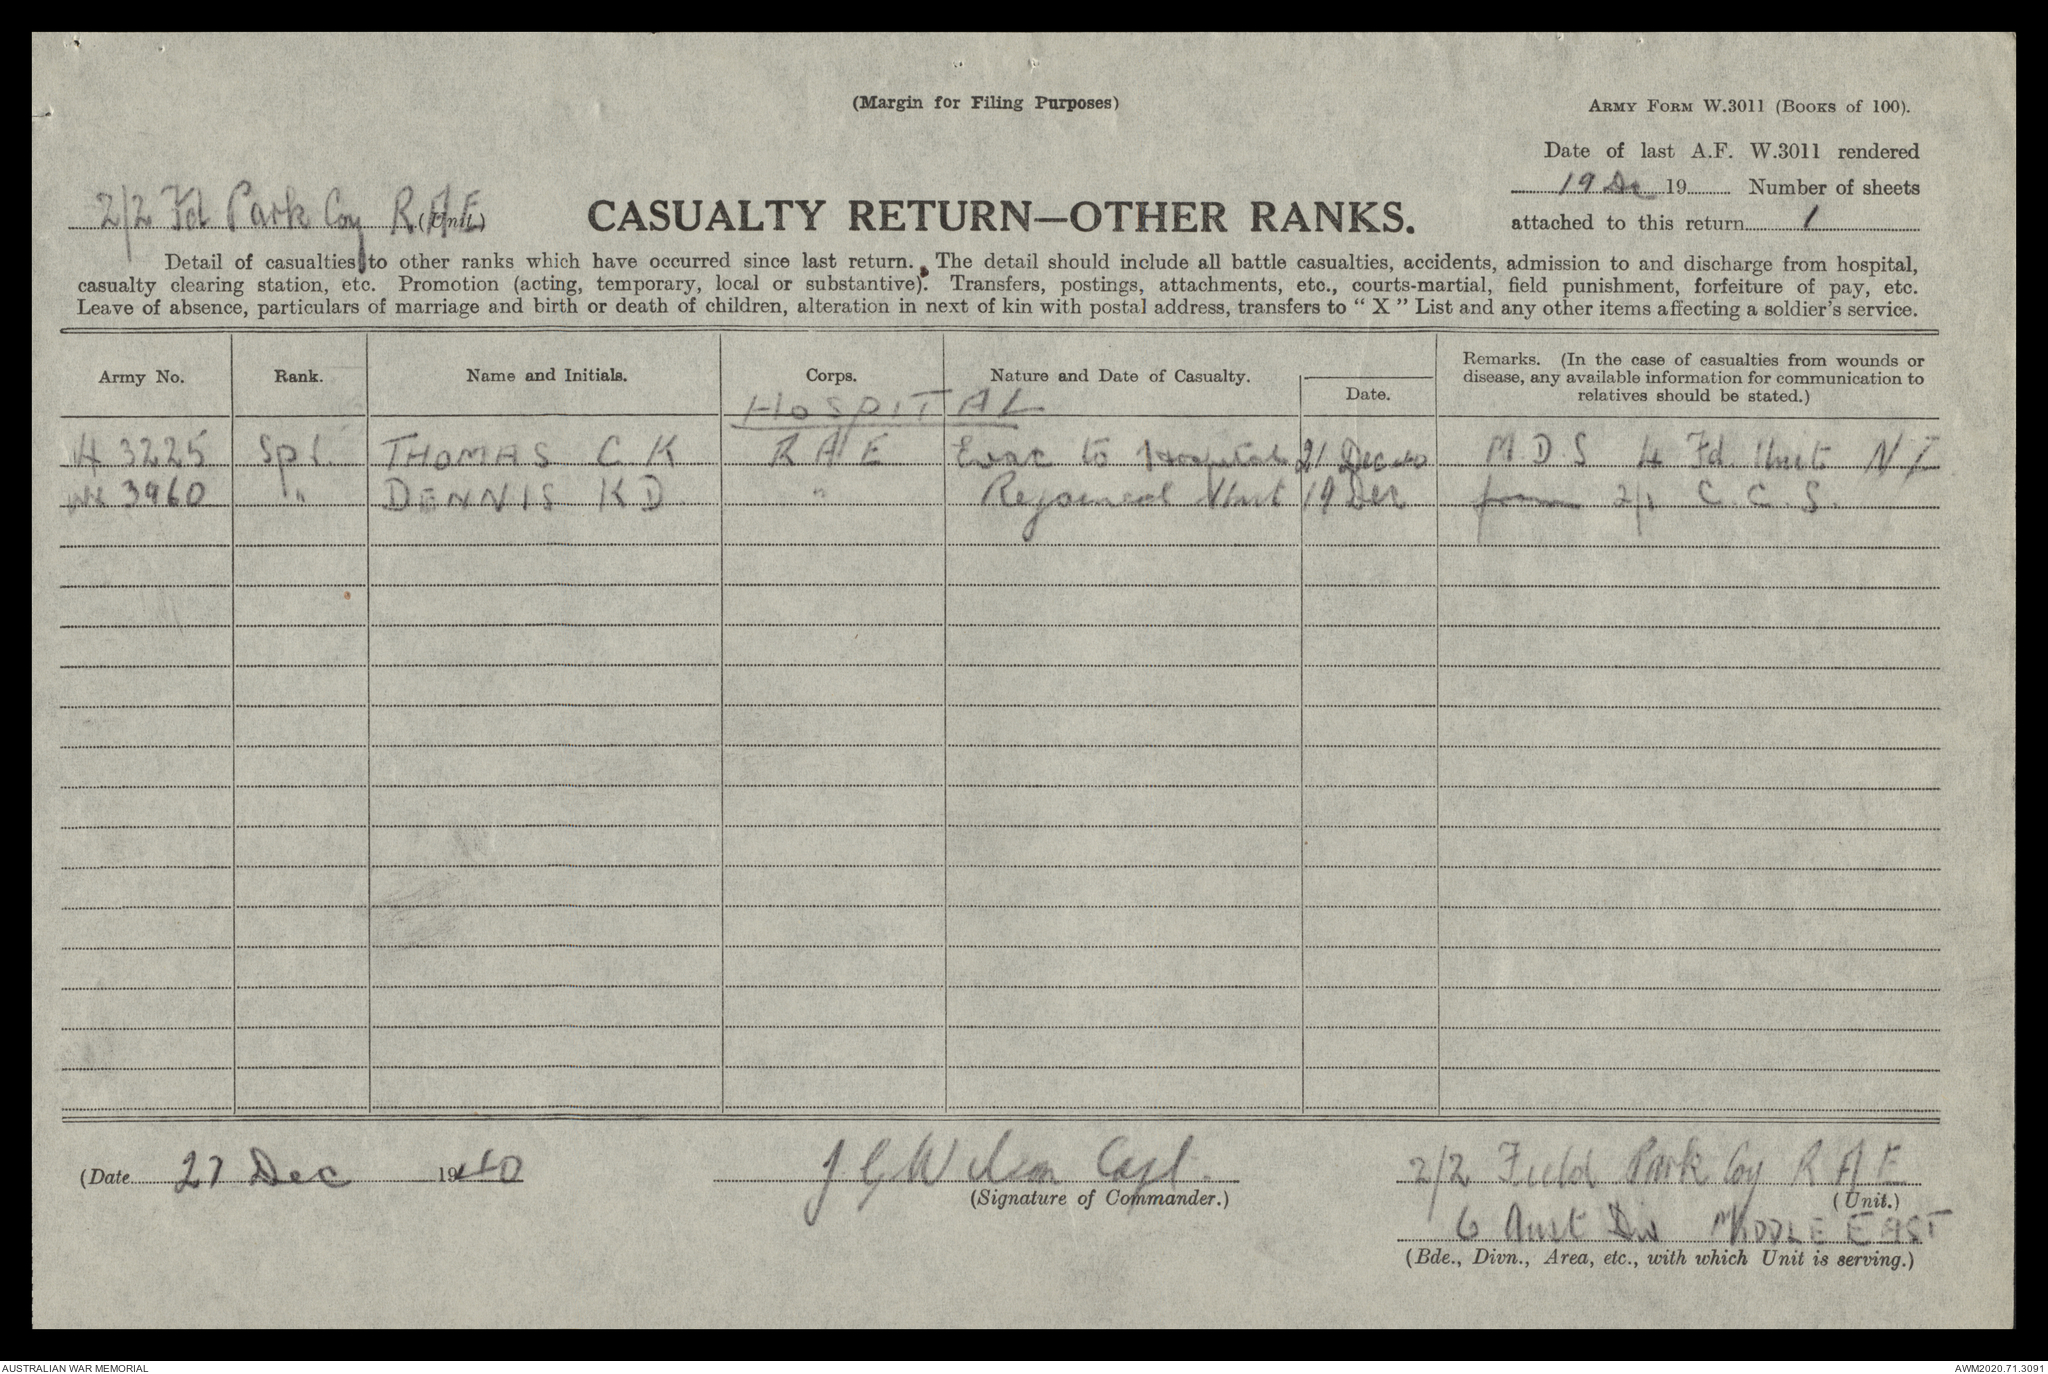 (Margin for Filing Purposes)
ARMY FORM W.3011 (BOOKS of 100).
Date of last A.F. W.3011 rendered
19 Dec 19........ Number of sheets
attached to this return 1
2/2 Fd Park Coy R A E (Unit.)
CASUALTY RETURN—OTHER RANKS.
Detail of casualties to other ranks which have occurred since last return. The detail should include all battle casualties, accidents, admission to and discharge from hospital,
casualty clearing station, etc. Promotion (acting, temporary, local or substantive). Transfers, postings, attachments, etc., courts-martial, field punishment, forfeiture of pay, etc.
Leave of absence, particulars of marriage and birth or death of children, alteration in next of kin with postal address, transfers to " X " List and any other items affecting a soldier's service.
Army No. Rank. Name and Initials. Corps. Nature and Date of Casualty. Date. Remarks. (In the case of casualties from wounds or
disease, any available information for communication to
relatives should be stated.)
HOSPITAL
3225 Spr. THOMAS C K R A E Evac to Hospital 21 Dec 40 M.D.S 4 Fd. N Z
3960 " DENNIS K D " Rejoined Unit 19 Dec from 2/1 C.C.S.
(Date 27 Dec 1940
J G Wilson Capt.
(Signature of Commander.)
2/2 Field Park Coy R A E
(Unit.)
6 Aust Div MIDDLE EAST
(Bde., Divn., Area, etc., with which Unit is serving.)
AUSTRALIAN WAR MEMORIAL
AWM2020.71.3091